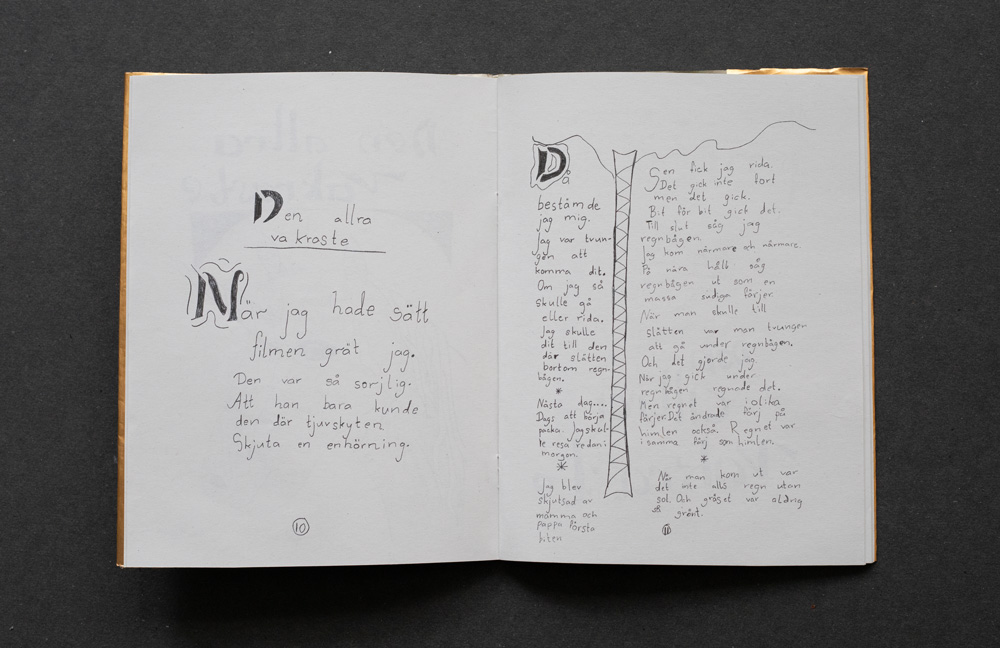 Den allra
vakraste
När jag hade sätt
filmen grät jag.
Den var så sorjlig.
Att han bara kunde
den där tjuvskyten
Skjuta en enhörning.
10
Då
bestämde
jag mig.
Jag var tvun-
gen att
komma dit.
Om jag så
skulle gå
eller rida.
Jag skulle
dit till den
där slätten
bortom regn-
bågen.
*
Nästa dag....
Dags att börja
packa. Jag skul-
le resa redan i
morgon.
*
Jag blev
skjutsad av
mamma och
pappa första
biten
Sen fick jag rida.
Det gick inte fort
men det gick.
Bit för bit gick det.
Till slut såg jag
regnbågen.
Jag kom närmare och närmare.
På nära håll såg
regnbågen ut som en
massa sudiga färjer
När man skulle till
slätten var man trungen
att gå under regnbågen.
Och det gjorde jag.
När jag gick under
regnbågen regnade det.
Men regnet var i olika
färjer. Det ändrade färj på
himlen också. Regnet var
i samma färj som himlen.
*
När man kom ut var
det inte alls regn utan
sol. Och gräset var aldrig
så grönt.
11